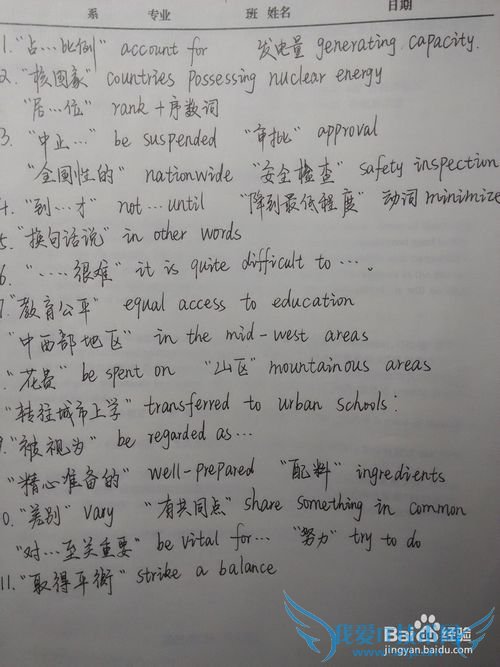 系 专业 班 姓名 日期
1. "占…比例" account for 发电量 generating capacity.
2. "核国家" countries possessing nuclear energy
"居…位" rank + 序数词
3. "中止…" be suspended "审批" approval
"全国性的" nationwide "安全检查" safety inspection
4. "到…才" not…until "降到最低程度" 动词 minimize
5. "换句话说" in other words
6. "……很难" it is quite difficult to ….
7. "教育公平" equal access to education
"中西部地区" in the mid-west areas
"花费" be spent on "山区" mountainous areas
"转往城市上学" transferred to urban schools:
9. "被视为" be regarded as…
"精心准备的" well-prepared "配料" ingredients
0. "差别" vary "有共同点" share something in common
"对…至关重要" be vital for… "努力" try to do
11. "取得平衡" strike a balance
Baidu 经验
jingyan.baidu.com